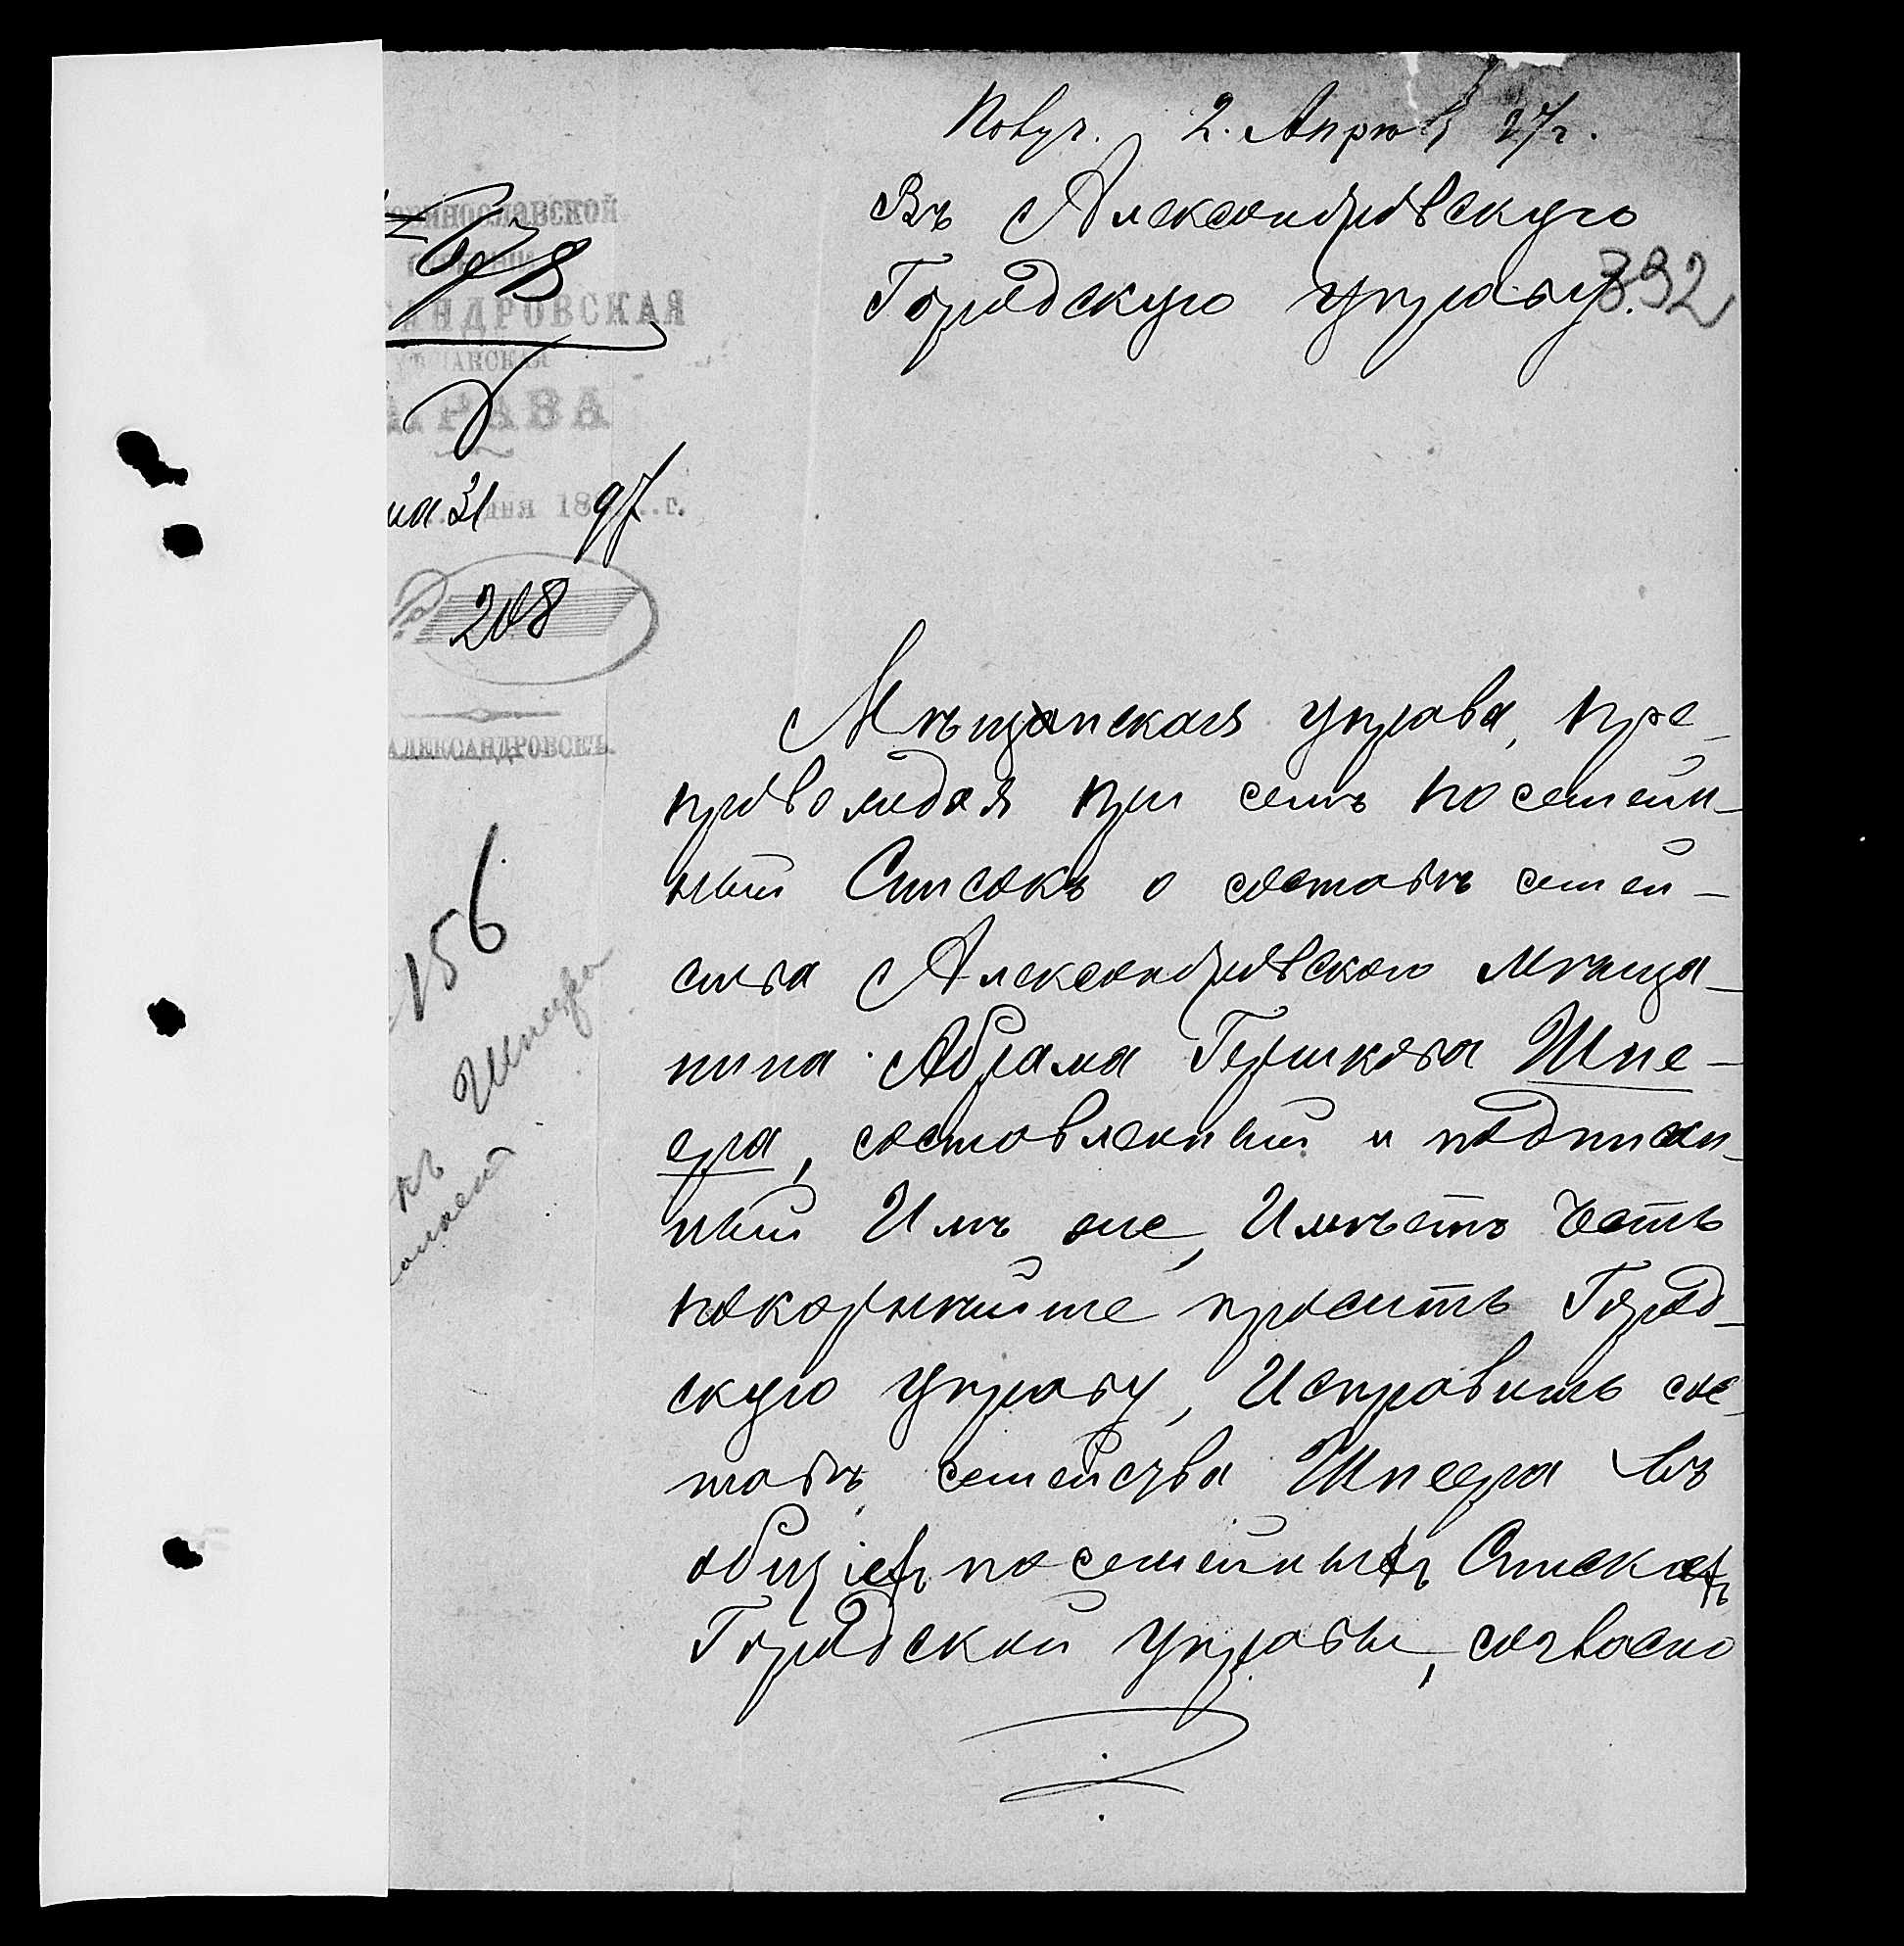 Получ. 2. Апрѣля 97 г.
Въ Александровскую
Городскую управу.
392
ринославской
САНДРОВСКАЯ
МѢЩАНСКАЯ
АРАВА
та 31 дня 1897 г.
208
АЛЕКСАНДРОВСКЪ.
156
Шпеера
Мѣщанская управа, пре-
провождая при семъ посемейн-
ный Списокъ о составѣ семей-
ства Александровского мѣща-
нина Абрама Гершкова Шпе-
ера, составленный и подписан-
ный Имъ же, Имѣетъ честь
покорнѣйше просить Город-
скую управу, Исправить сос-
тавъ семейства Шпеера въ
общихъ посемейныхъ Спискахъ
Городской управы, согласно